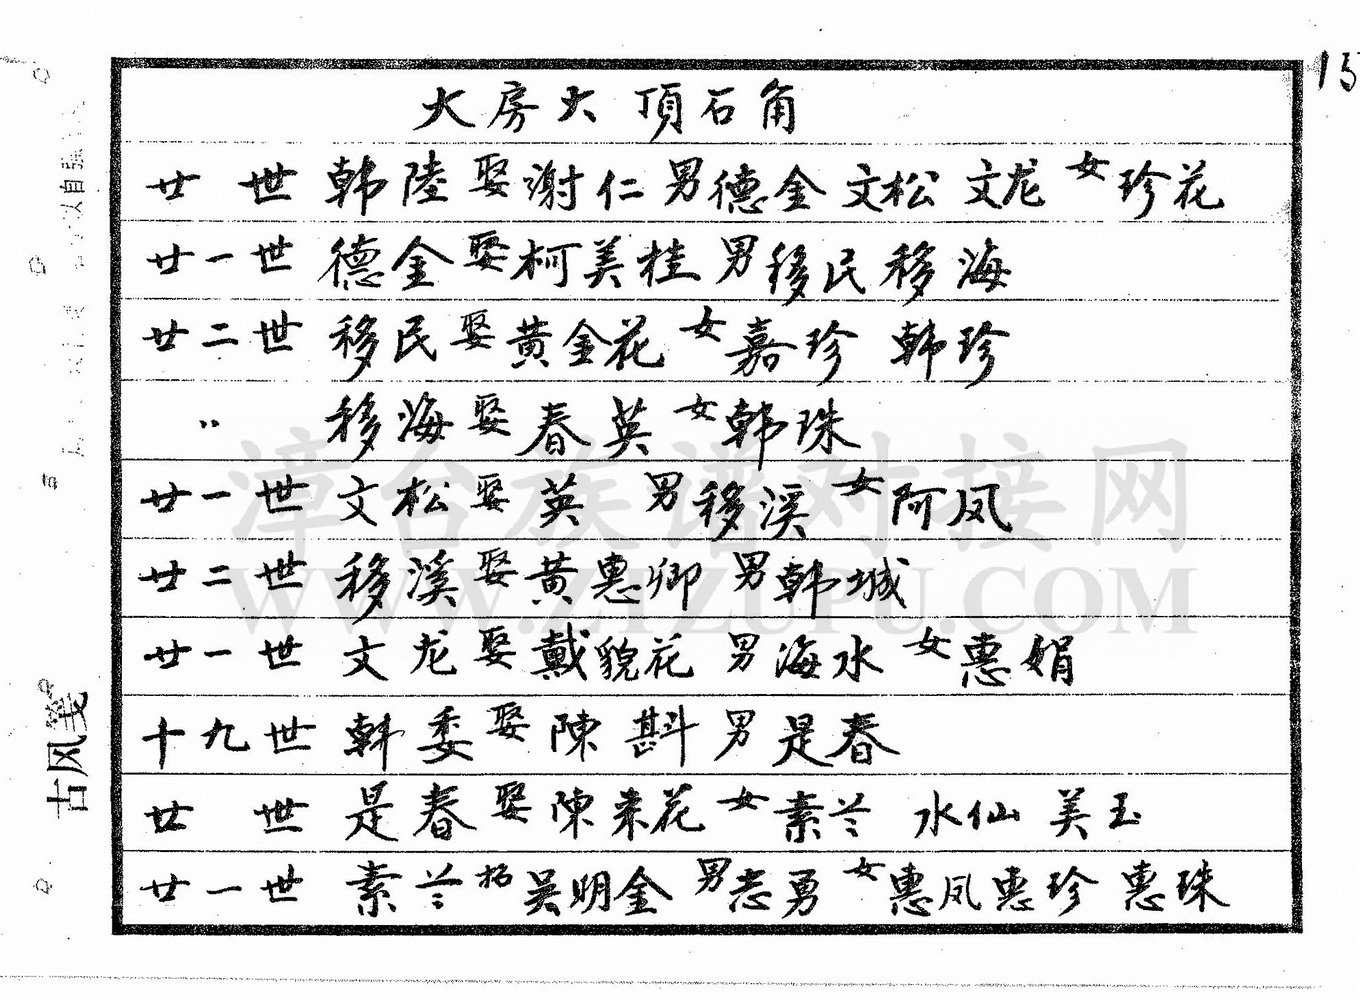 13
大房大頂石角
廿世韩陸娶谢仁男德金文松文龙女珍花
廿一世德金娶柯美桂男移民移海
廿二世移民娶黄金花女嘉珍韩珍
〃移海娶春英女韩珠
廿一世文松娶英男移溪女阿凤
廿二世移溪娶黄惠卿男韩城
廿一世文龙娶戴貌花男海水女惠娟
十九世韩委娶陳斟男是春
廿世是春娶陳来花女素兰水仙美玉
廿一世素兰招吴明金男志勇女惠凤惠珍惠珠
古风笺
漳台族谱对接网
WWW.ZTZUPU.COM